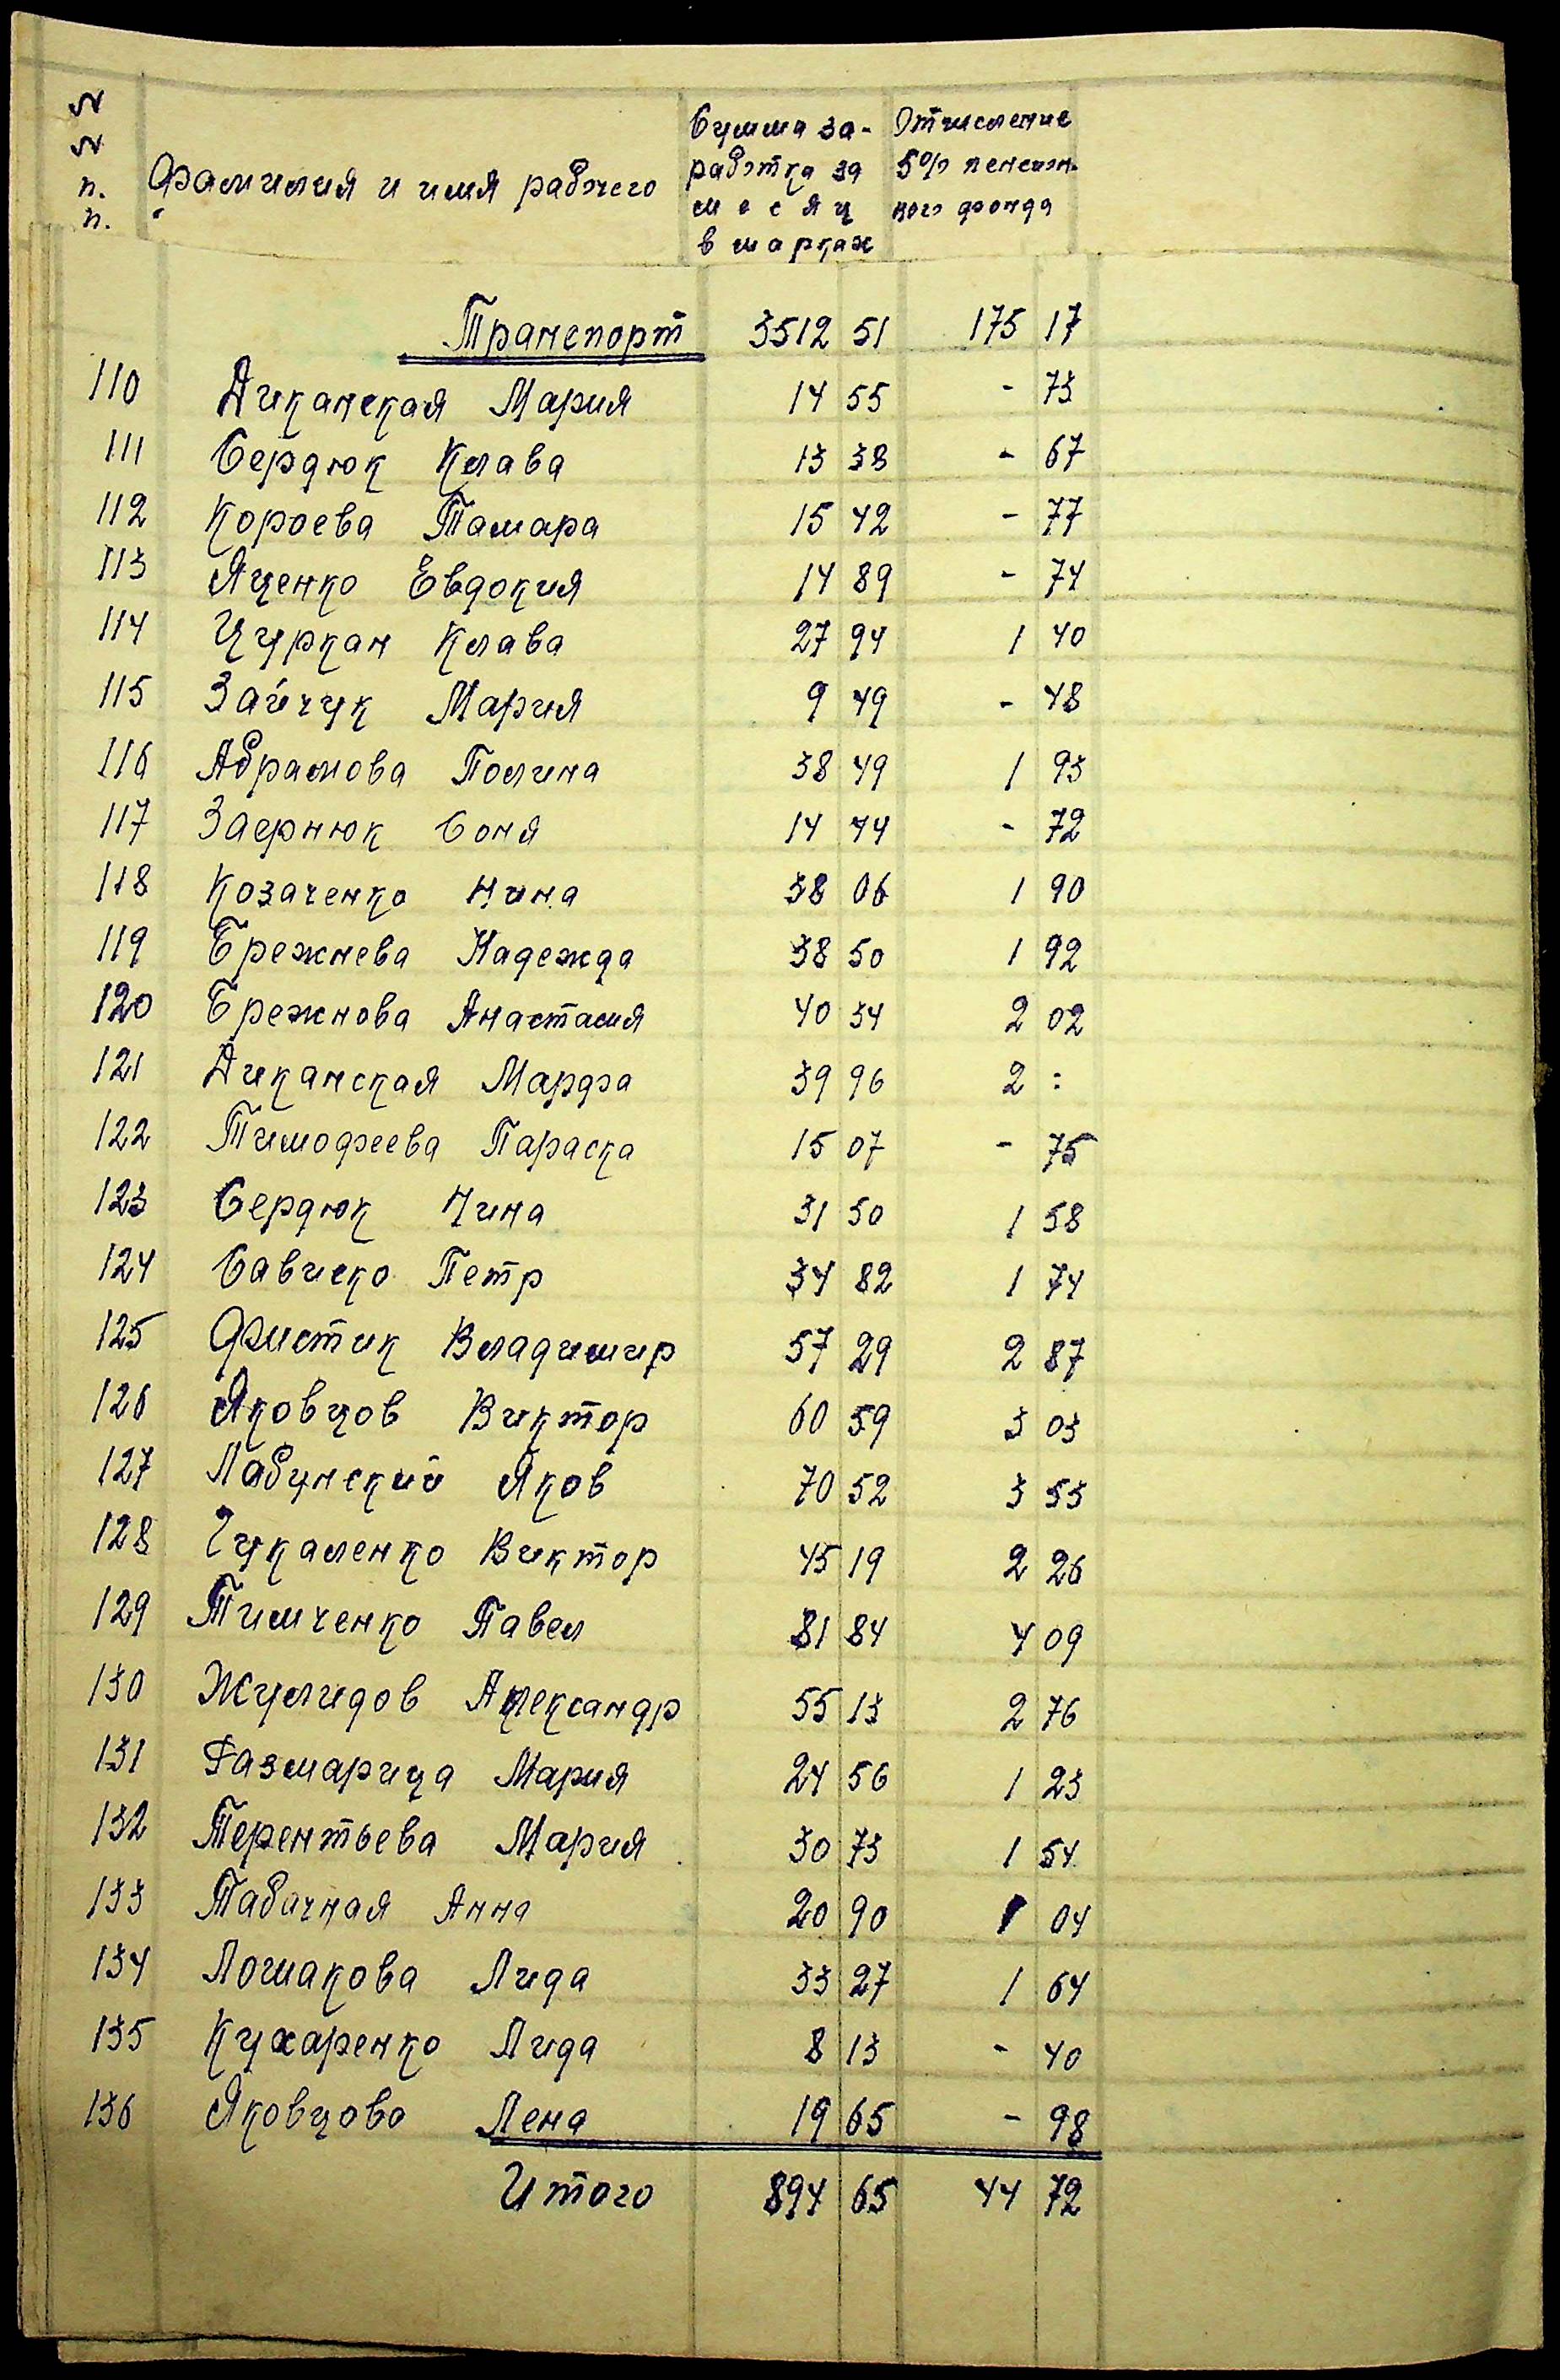 N N п. п. Фамилия и имя рабочего Сумма заработка за месяц в марках Отчисление 5% пенсионного фонда
Транспорт 3512 51 175 17
110 Диканская Мария 14 55 - 73
111 Сердюк Клава 13 38 - 67
112 Короева Тамара 15 42 - 77
113 Яценко Евдокия 14 89 - 74
114 Цуркан Клава 27 94 1 40
115 Зайчук Мария 9 49 - 48
116 Абрамова Полина 38 49 1 93
117 Заернюк Соня 14 44 - 72
118 Козаченко Нина 38 06 1 90
119 Брежнева Надежда 38 50 1 92
120 Брежнова Анастасия 40 34 2 02
121 Диканская Марфа 39 96 2 :
122 Тимофеева Параска 15 07 - 75
123 Сердюк Нина 31 50 1 58
124 Сависко Петр 34 82 1 74
125 Фистик Владимир 57 29 2 87
126 Яковцов Виктор 60 59 3 03
127 Лабунский Яков 70 52 3 53
128 Чукаленко Виктор 45 19 2 26
129 Тимченко Павел 81 84 4 09
130 Жулидов Александр 55 13 2 76
131 Газмарица Мария 24 56 1 23
132 Терентьева Мария 30 73 1 54
133 Табачная Анна 20 90 1 04
134 Лошакова Лида 33 27 1 64
135 Кухаренко Лида 8 13 - 40
136 Яковцова Лена 19 65 - 98
Итого 894 65 44 72